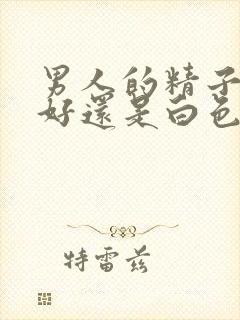 男人的精子
好還是白色
特雷兹